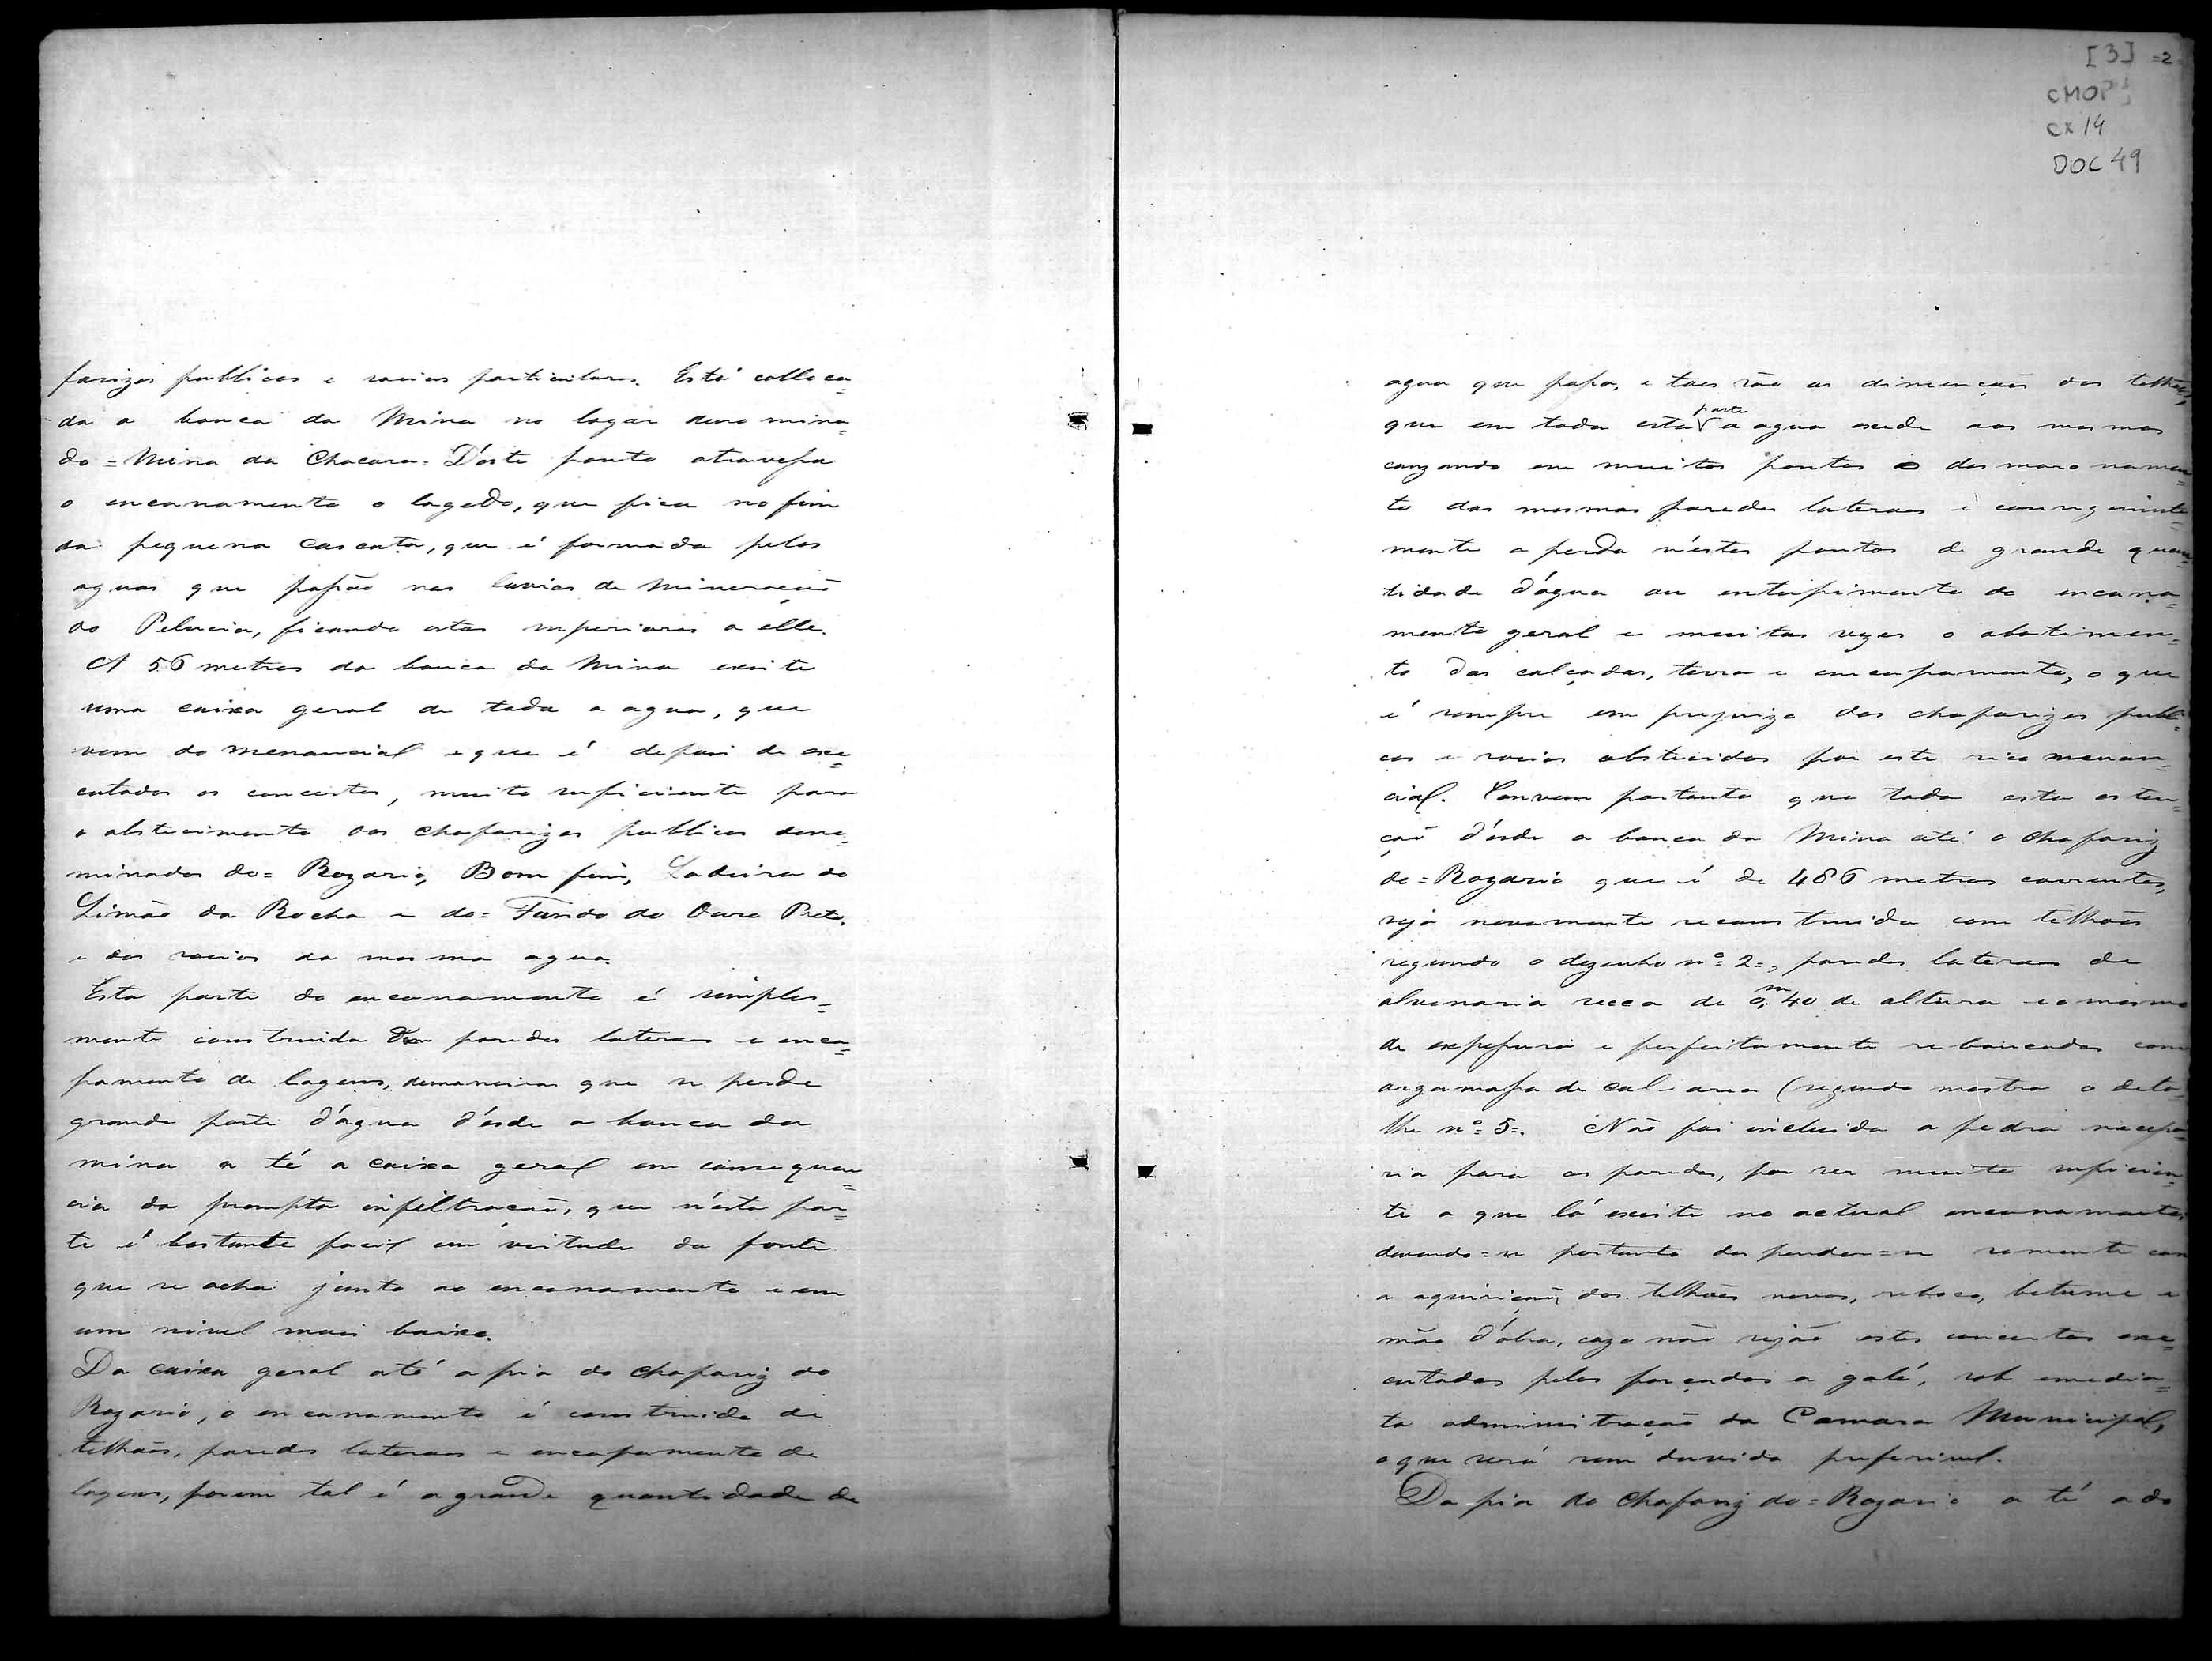 farizes publicos e socios particulares. Está colloca=
da a banca da Mina no logar deno mina=
do = Mina da Chacara = D'éste ponto atravessa
o encanamento o lagedo, que fica no fim
da pequena cascata, que é formada pelas
aguas que passão nas lavras de mineração
do Pelucia, ficando estas superiores a elle.
A 56 metros da banca da Mina existe
uma caixa geral de toda a agua, que
vem do menancial e que é depois de exe=
cutados os concertos, muito sufficiente para
o abstecimento dos chafarizes publicos deno=
minados do= Rozario, Bom fim, Ladeira do
Simão da Rocha e do= Fundo do Ouro Preto,
e dos socios da mesma agua.
Esta parte do encanamento é simples=
mente construida com paredes lateraes e enca=
pamento de lagens, demaneira que se perde
grande parte d'ágoa d'ésde a banca da
mina a té a caixa geral em consequen=
cia da prompta infiltração, que n'ésta par=
te é bastante facil em virtude da fonte
que se acha junto ao encanamento e em
um nivel mais baixo.
Da caixa geral até a pia do chafariz do
Rozario, o encanamento é construido de
telhões, paredes lateraes e encapamento de
lagens, porem tal é a grande quantidade de
[3] =2=
CMOP
CX 14
DOC 49
agua que passa, e taes são as dimenções dos telhões,
que em toda esta parte a agua excede aos mesmos
cauzando em muitos pontos o desmoronamen=
to das mesmas paredes lateraes e conseguinte=
mente a perda n'éstes pontos de grande quan=
tidade d'ágoa ou entupimento do encana=
mento geral e muitas vezes o abatimen=
to das calçadas, terra e encapamento, o que
é sempre em prejuizo dos chafarizes publi=
cos e socios abstecidos por este rico menan=
cial. Convem portanto que toda esta exten=
ção d'ésde a banca da Mina até o chafariz
do= Rozario que é de 486 metros correntes,
seja novamente reconstruida com telhões
segundo o dezenho nº= 2=, paredes lateraes de
alvenaria secca de 0,m40 de altura e o mesmo
de espessura e perfeitamente rebocadas com
argamassa de cal e area (segundo mostra o deta=
lhe nº= 5=. Não foi incluida a pedra necessa=
ria para as paredes, por ser muito sufficien=
te a que lá existe no actual encanamento,
devendo=se portanto despender=se somente com
a aquisição dos telhões novos, reboco, betume e
mão d'óbra, cazo não sejão estes concertos exe=
cutados pelos forçados a galé, sob emedia=
ta administração da Camara Municipal,
o que será sem duvida preferivel.
Da pia do chafariz do= Rozario a té a do